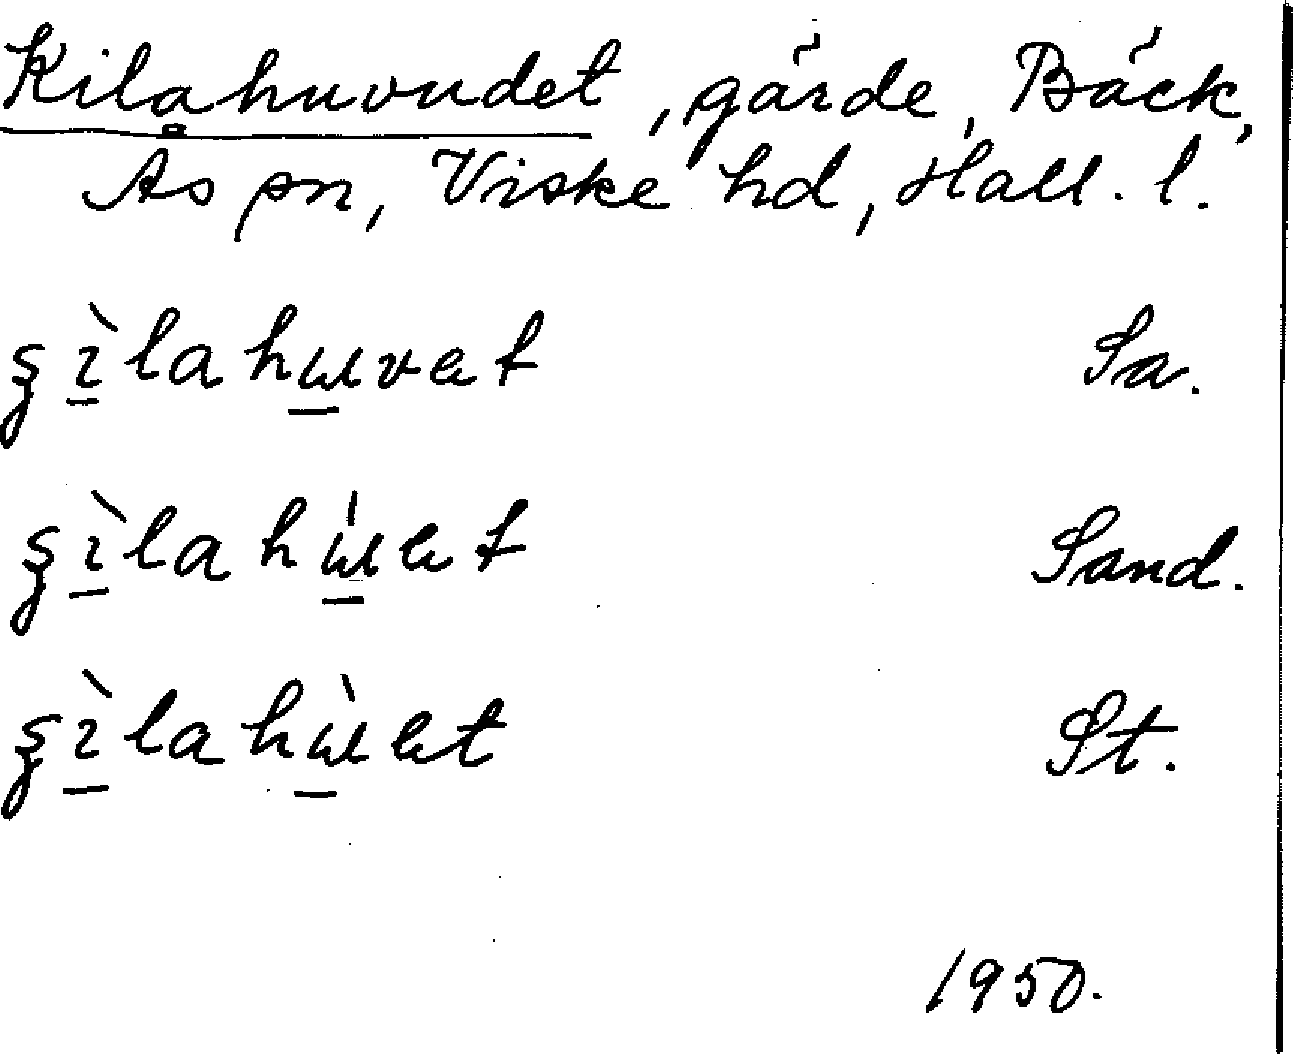 Kilahuvudet, gärde, Bäck,
Ås sn, Viske hd, Hall. l.
ȿìlahuvet Sa.
ȿìlahúet Sand.
ȿìlahùet St.
1950.